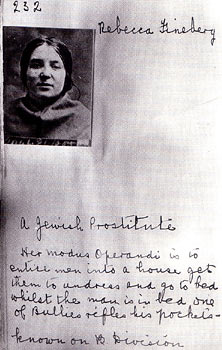 232
Rebecca Fineberg
A Jewish Prostitute
Her modus Operandi is to
entice men into a house get
them to undress and go to bed
whilst the man is in bed one
of Bullies rifles his pockets-
known on H Division